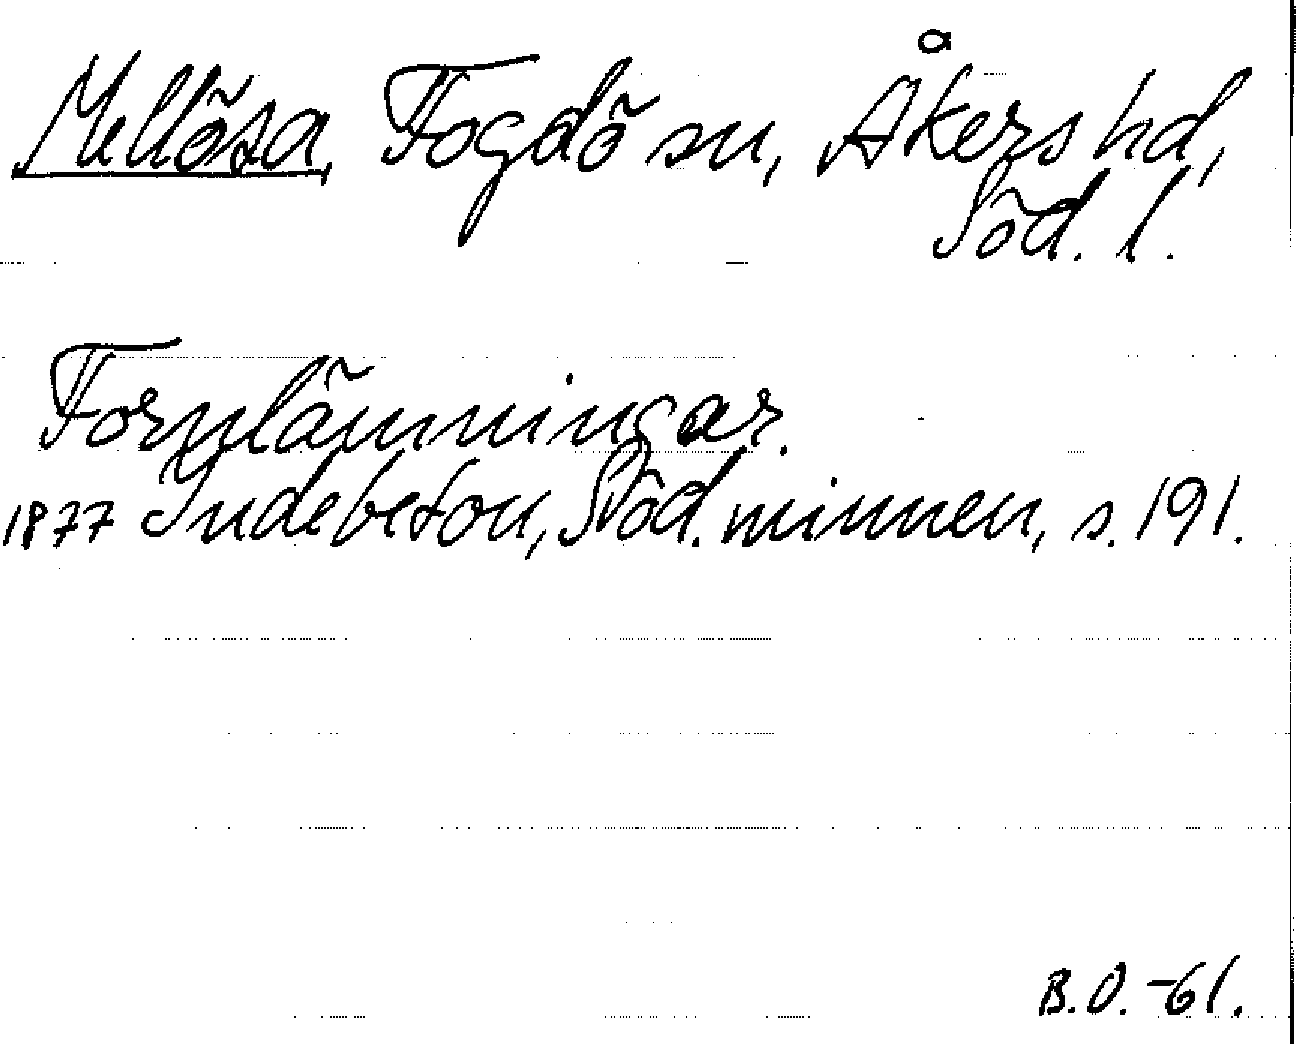 Mellösa, Fogdö sn, Åkers hd,
Söd. l.
Fornlämningar.
1877 Indebetou, Söd. minnen, s. 191.
B.O. -61.